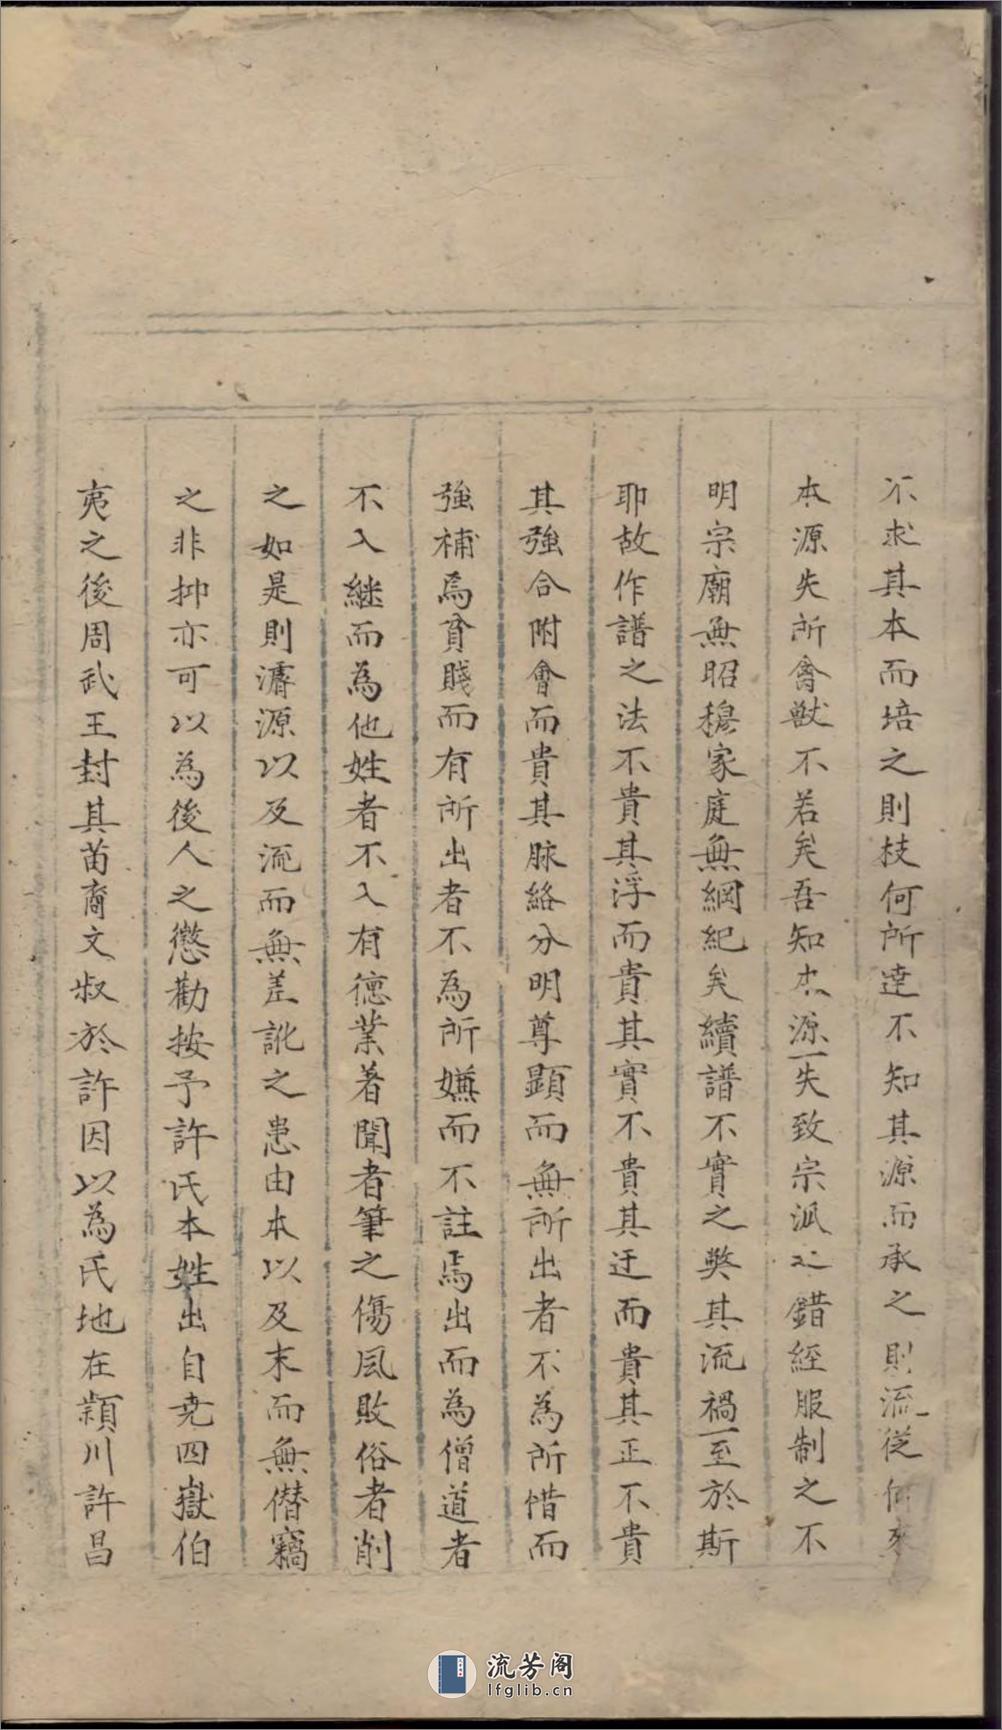 不求其本而培之則枝何所達不知其源而承之則流從何來
本源失所禽獸不若矣吾知本源一失致宗派之錯經服制之不
明宗廟無昭穆家庭無綱紀矣續譜不實之獘其流禍一至於斯
耶故作譜之法不貴其浮而貴其實不貴其迂而貴其正不貴
其強合附會而貴其脉絡分明尊顕而無所出者不為所惜而
強補焉貧賤而有所出者不為所嫌而不註焉出而為僧道者
不入継而為他姓者不入有德業著聞者筆之傷風敗俗者削
之如是則濬源以及流而無差訛之患由本以及末而無僣竊
之非抑亦可以為後人之懲勸按予許氏本姓出自尭四嶽伯
夷之後周武王封其苗裔文叔於許因以為氏地在潁川許昌
流芳阁
lfglib.cn